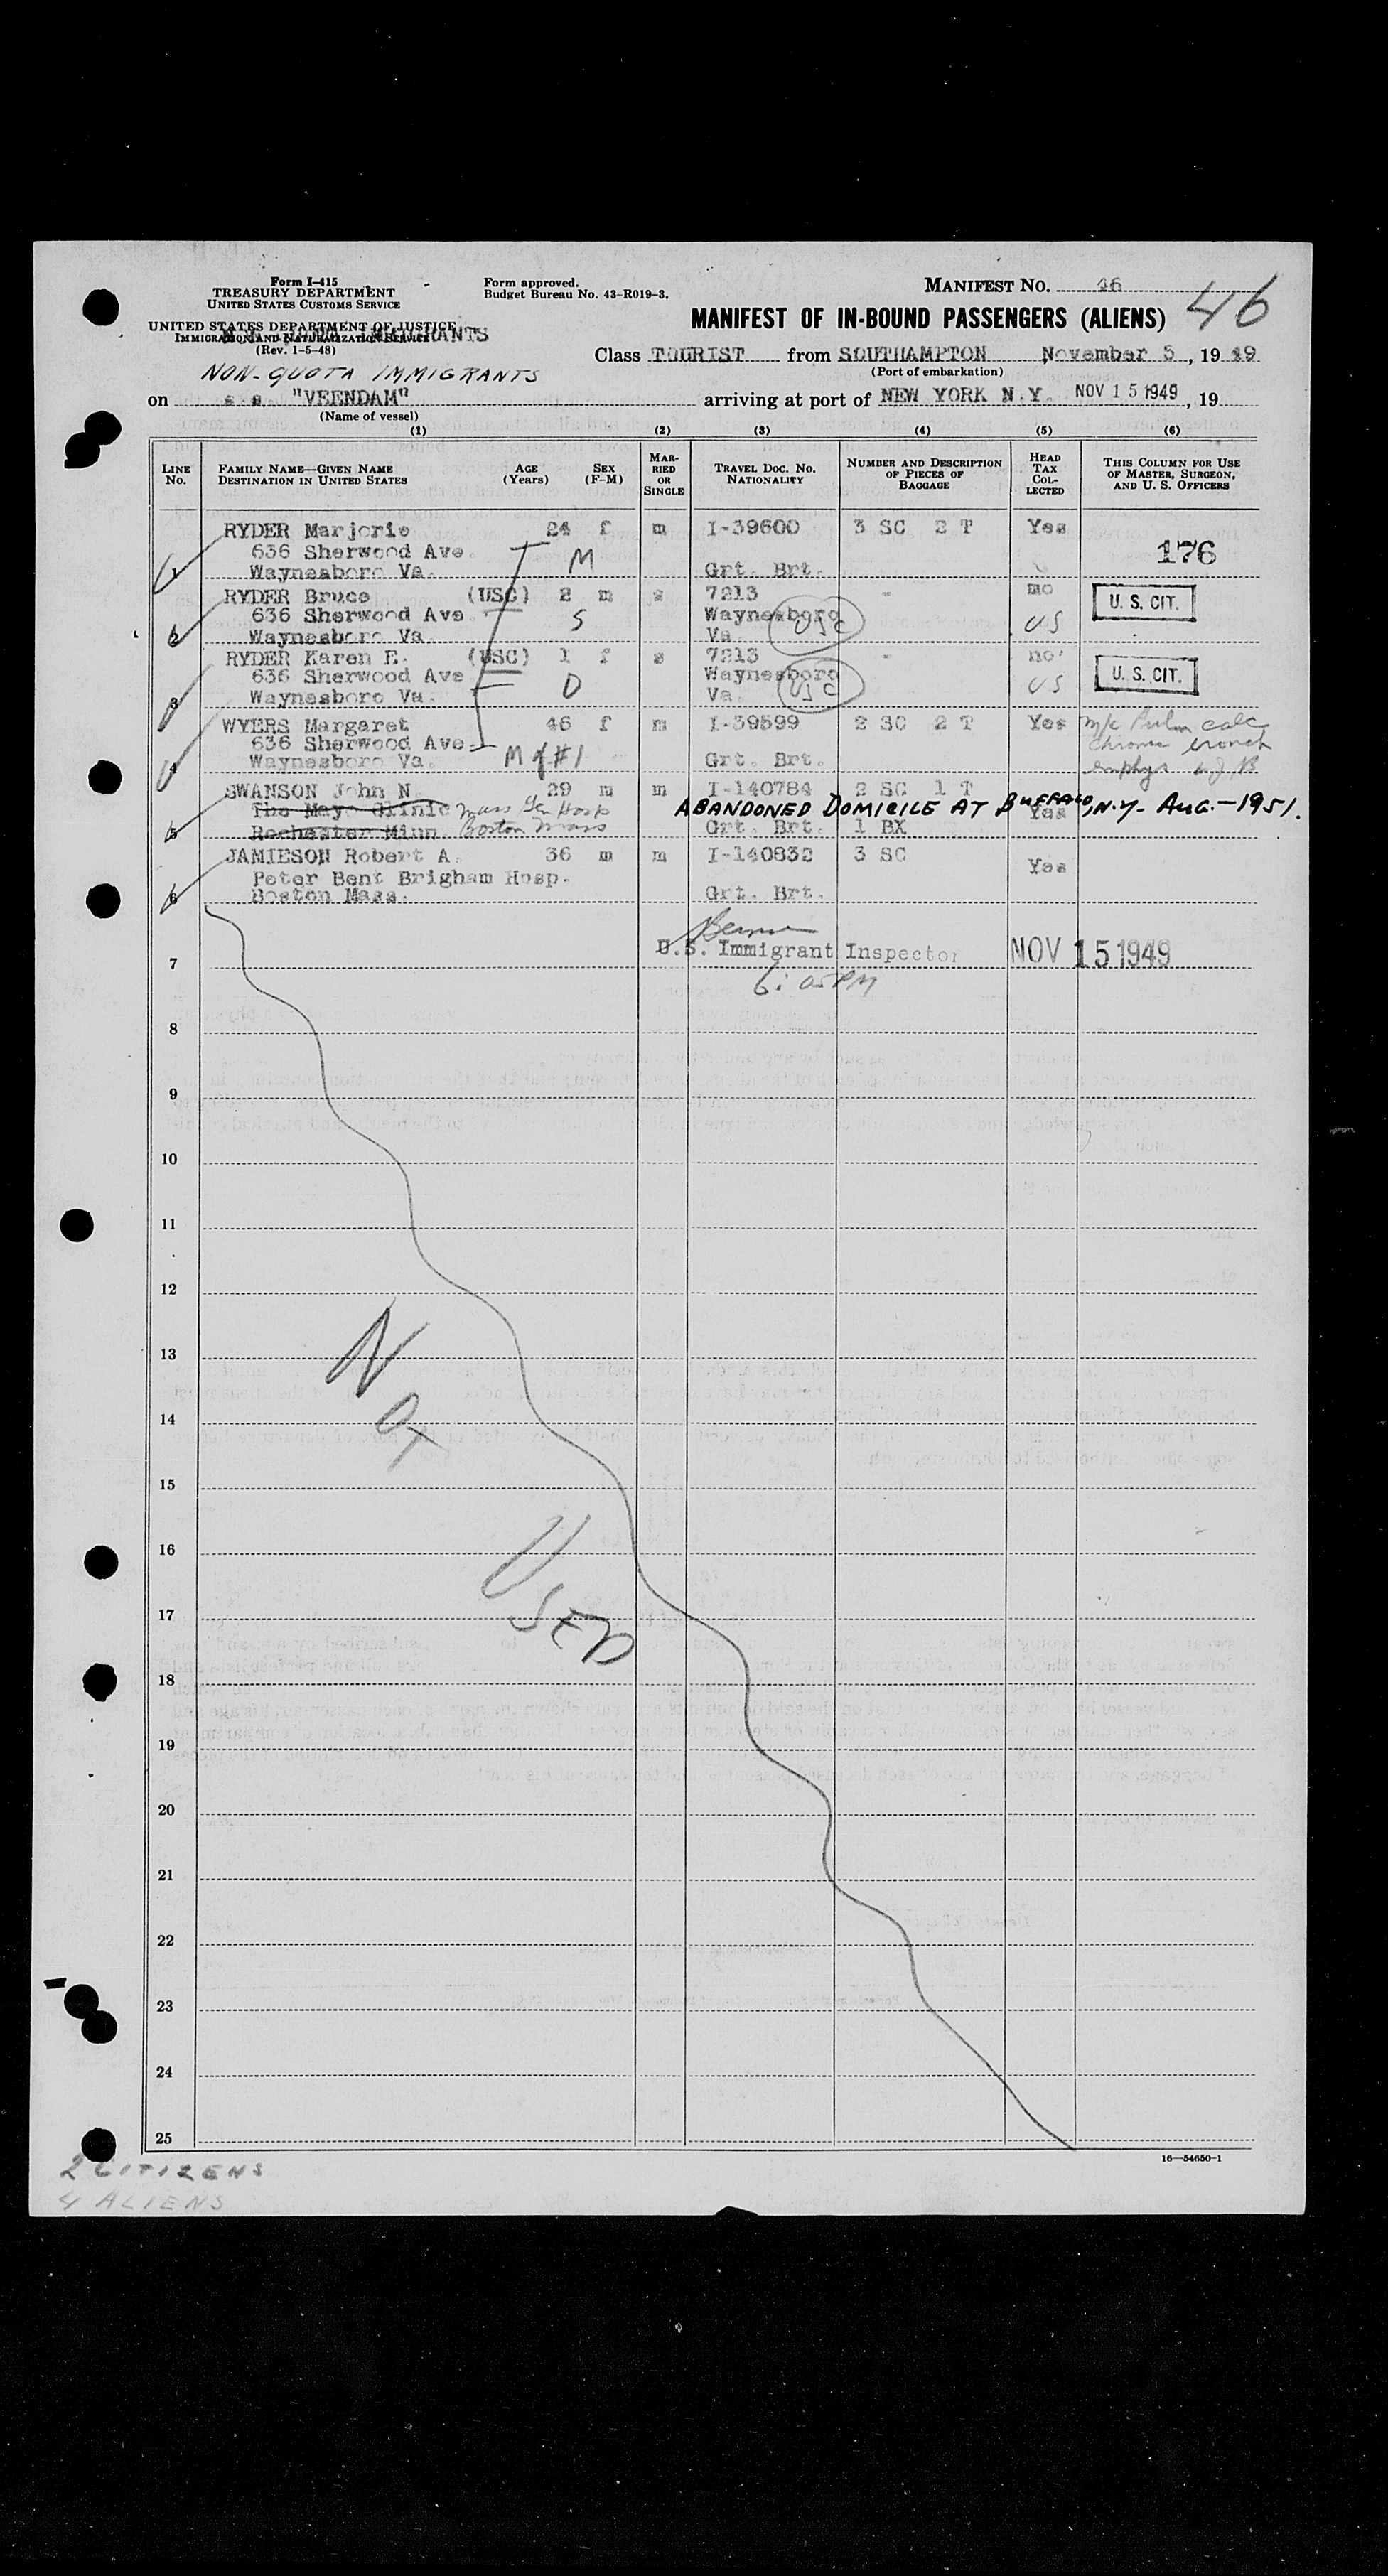 Form I-415
TREASURY DEPARTMENT
UNITED STATES CUSTOMS SERVICE
UNITED STATES DEPARTMENT OF JUSTICE
IMMIGRATION AND NATURALIZATION SERVICE
(Rev. 1-5-48)
Form approved.
Budget Bureau No. 43-R019-3.
MANIFEST NO. 46
46
MANIFEST OF IN-BOUND PASSENGERS (ALIENS)
Class TOURIST from SOUTHAMPTON November 5, 1949
(Port of embarkation)
NON-QUOTA IMMIGRANTS
on s s "VEENDAM" arriving at port of NEW YORK N.Y. NOV 15 1949, 19
(Name of vessel)
(1) (2) (3) (4) (5) (6)
LINE No. FAMILY NAME—GIVEN NAME DESTINATION IN UNITED STATES AGE (Years) SEX (F-M) MARRIED OR SINGLE TRAVEL DOC. NO. NATIONALITY NUMBER AND DESCRIPTION OF PIECES OF BAGGAGE HEAD TAX COLLECTED THIS COLUMN FOR USE OF MASTER, SURGEON, AND U. S. OFFICERS
RYDER Marjorie 24 f m I-39600 3 SC 2 T Yes
636 Sherwood Ave. M 176
1 Waynesboro Va. Grt. Brt.
RYDER Bruce (USC) 2 m s 7213 - no U. S. CIT.
636 Sherwood Ave S Waynesboro USC US
2 Waynesboro Va. Va.
RYDER Karen E. (USC) 1 f s 7213 - no
636 Sherwood Ave D Waynesboro USC US U. S. CIT.
3 Waynesboro Va. Va.
WYERS Margaret 46 f m I-39599 2 SC 2 T Yes m/c Pulm calc
636 Sherwood Ave. chronic bronch
4 Waynesboro Va. M of #1 Grt. Brt. emphys
SWANSON John N. 29 m m I-140784 2 SC 1 T
The Mayo Clinic Mass Gen Hosp ABANDONED DOMICILE AT BUFFALO, N.Y. - AUG. - 1951. Yes
5 Rochester Minn Boston Mass Grt. Brt. 1 BX
JAMIESON Robert A. 36 m m I-140832 3 SC Yes
Peter Bent Brigham Hosp.
6 Boston Mass. Grt. Brt.
U.S. Immigrant Inspector NOV 15 1949
7
6:05 PM
8
9
10
11
12
13
NOT
14
15
16
USED
17
18
19
20
21
22
23
24
25
16—54650-1
2 CITIZENS
4 ALIENS